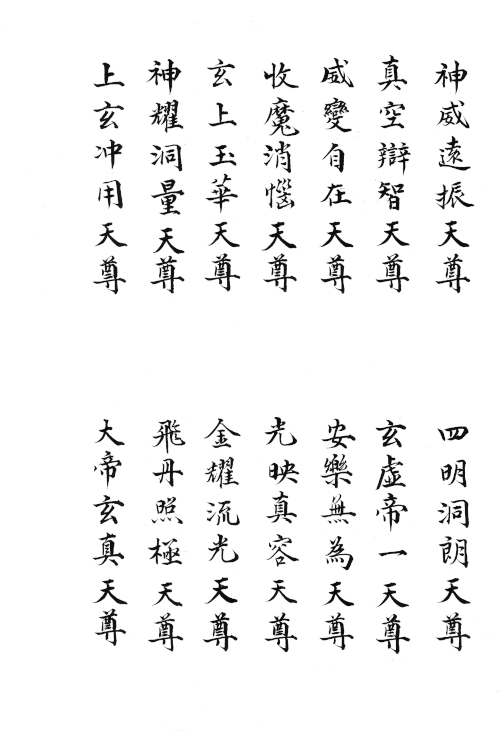 神威遠振天尊
四明洞朗天尊
真空辯智天尊
玄虛帝一天尊
威變自在天尊
安樂無為天尊
收魔消惱天尊
光映真容天尊
玄上玉華天尊
金耀流光天尊
神耀洞量天尊
飛丹照極天尊
上玄沖用天尊
大帝玄真天尊